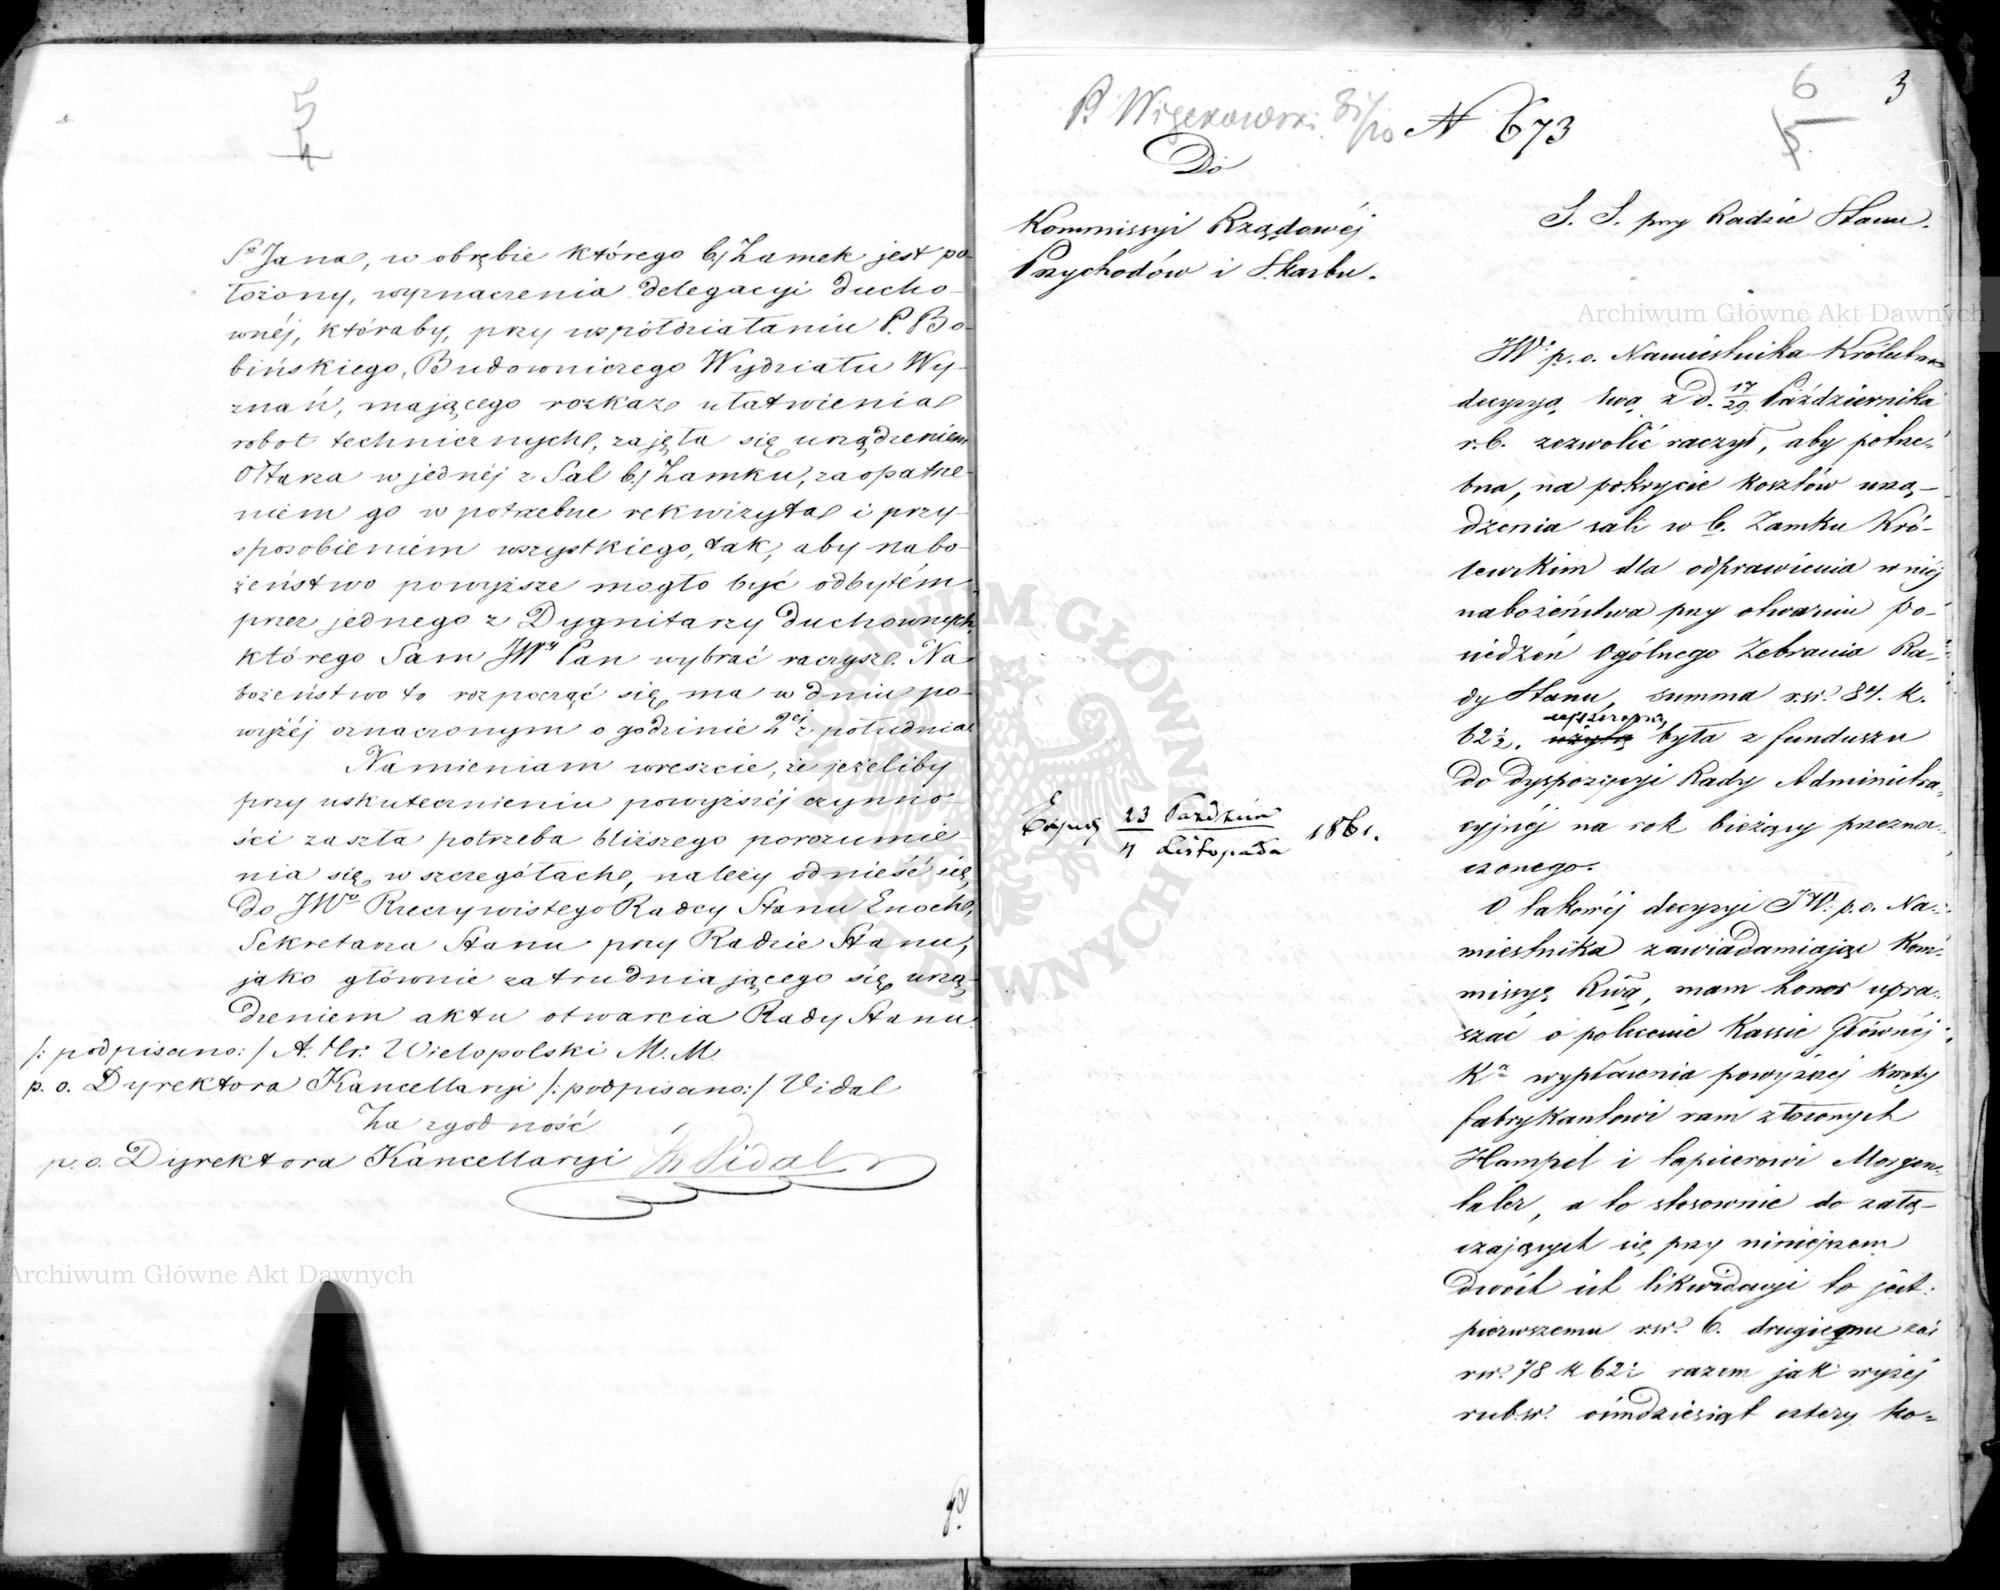 5
4
Sº Jana, w obrębie którego b/ Zamek jest po-
łożony, wyznaczenia delegacyi ducho-
wnéj, któraby, przy współdziałaniu P. Bo-
bińskiego, Budowniczego Wydziału Wy-
znań, mającego rozkaz ułatwienia
robot technicznych, zajęła się urządzeniem
Ołtarza w jednéj z Sal b/ Zamku, zaopatrze-
niem go w potrzebne rekwizyta i przy-
sposobieniem wszystkiego, tak, aby nabo-
żeństwo powyższe mogło być odbytém
przez jednego z Dygnitarzy duchownych,
którego Sam JWy Pan wybrać raczysz. Na-
bożeństwo to rozpocząć się ma w dniu po-
wyżéj oznaczonym o godzinie 2ej z południa
Namieniam wreszcie, że jeżeliby
przy uskutecznieniu powyższéj czynno-
ści zaszła potrzeba bliższego porozumie
nia się w szczegółach, należy odnieść się
do JWº Rzeczywistego Radcy Stanu Enoch,
Sekretarza Stanu przy Radzie Stanu,
jako głównie zatrudniającego się urzą-
dzeniem aktu otwarcia Rady Stanu.
/: podpisano: / A. Hr. Wielopolski M. M.
p. o. Dyrektora Kancellaryi /: podpisano: / Vidal
Za zgodność
p. o. Dyrektora Kancellaryi Vidal
6
5
3
P.
N 673
Do
Kommissyi Rządowéj
Przychodów i Skarbu.
S. S. przy Radzie Stanu.
JW. p. o. Namiestnika Królestwa
decyzyą swą z d. 17/29 Października
r. b. zezwolić raczył, aby potrze-
bna, na pokrycie kosztów urzą-
dzenia sali w b. Zamku Kró-
lewskim dla odprawienia w niéj
nabożeństwa przy otwarciu po-
siedzeń Ogólnego Zebrania Ra-
dy Stanu, summa rsr. 84. k.
62½. użytą była z funduszu
do dyspozycyi Rady Administra-
cyjnéj na rok bieżący przezna-
czonego.
Exped. 23 Paździer / 4 Listopada 1861.
O takowéj decyzyi JW. p. o. Na-
miestnika zawiadamiając Kom-
missyę Rwą, mam honor upra-
szać o polecenie Kassie Głównéj
Kª wypłacenia powyższéj kwoty
fabrykantowi ram złoconych
Hampel i tapicerowi Morgen-
taler, a to stosownie do załą-
czających się przy niniejszem
dwóch ich likwidacyi to jest:
pierwszemu rsr. 6. drugiemu zaś
rsr. 78 k 62½ razem jak wyżej
rub.sr. ośmdziesiąt cztery ko-
Archiwum Główne Akt Dawnych
Archiwum Główne Akt Dawnych
ARCHIWUM GŁÓWNE AKT DAWNYCH